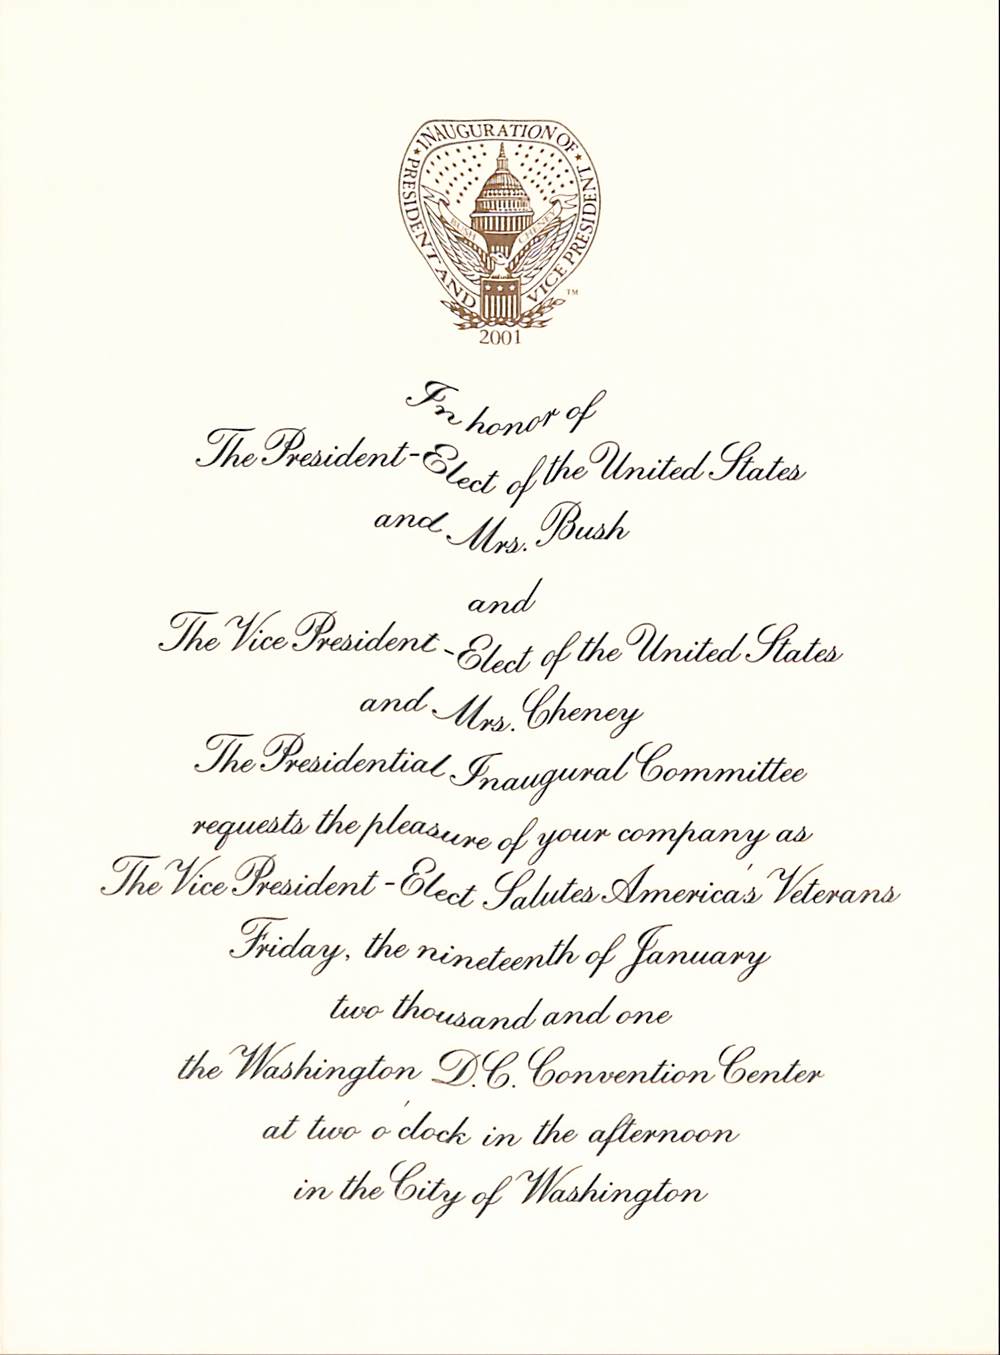 INAUGURATION OF
PRESIDENT AND VICE PRESIDENT
BUSH CHENEY
TM
2001
In honor of
The President-Elect of the United States
and Mrs. Bush
and
The Vice President-Elect of the United States
and Mrs. Cheney
The Presidential Inaugural Committee
requests the pleasure of your company as
The Vice President-Elect Salutes America's Veterans
Friday, the nineteenth of January
two thousand and one
the Washington D.C. Convention Center
at two o'clock in the afternoon
in the City of Washington